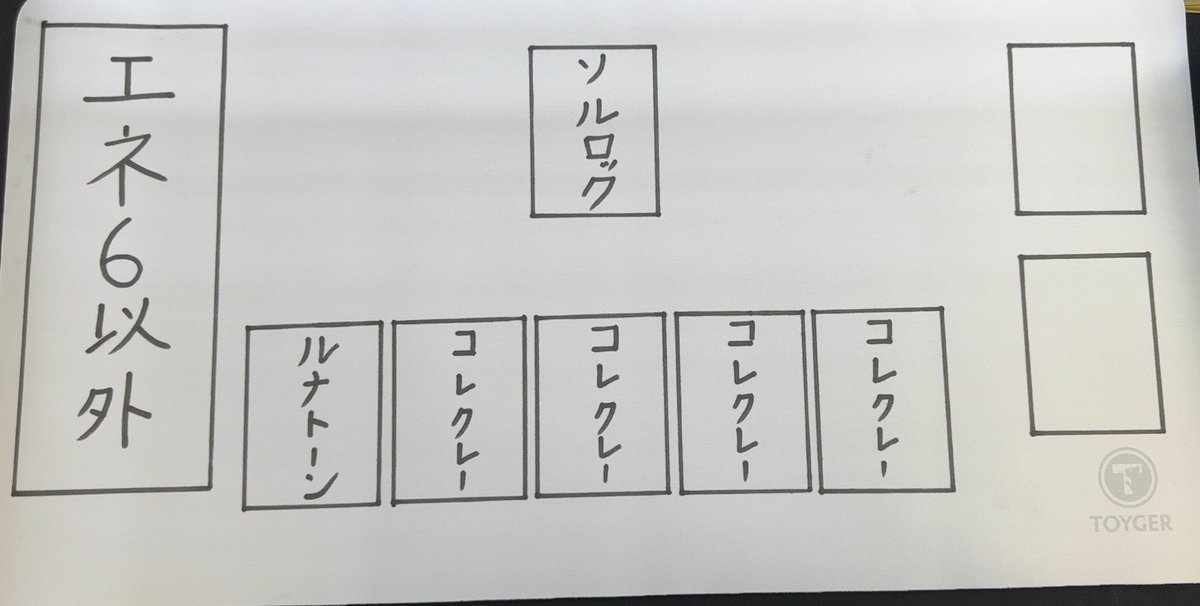 エネ6以外
ソルロック
ルナトーン
コレクレー
コレクレー
コレクレー
コレクレー
TOYGER